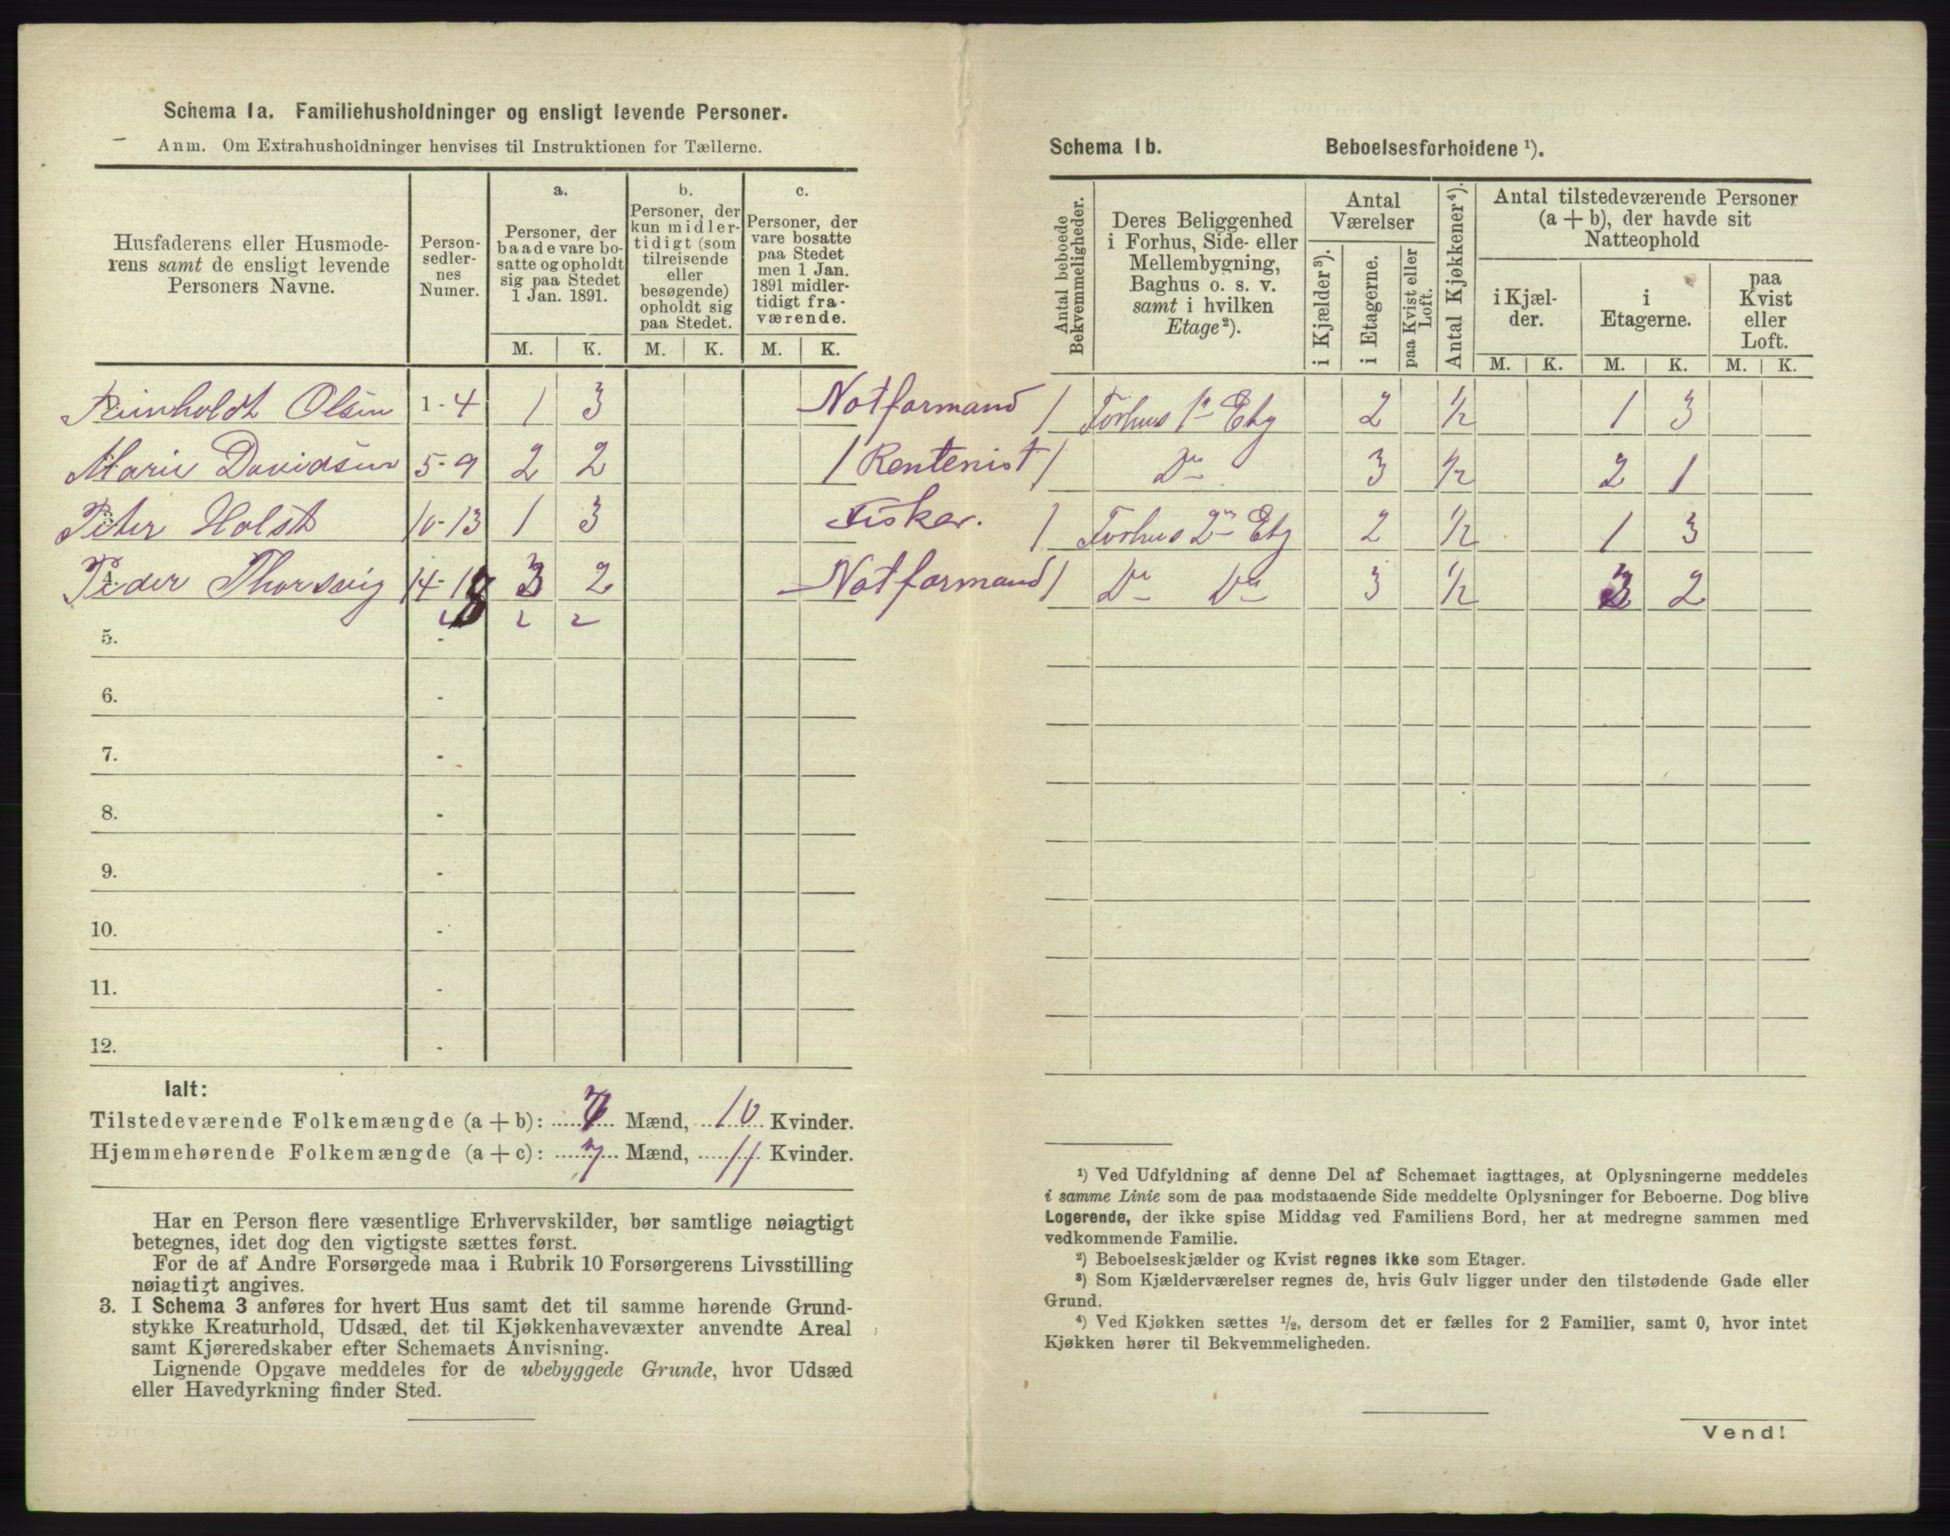 Schema 1a. Familiehusholdninger og ensligt levende Personer.
Anm. Om Extrahusholdninger henvises til Instruktionen for Tællerne.
Husfaderens eller Husmode-
rens samt de ensligt levende
Personers Navne.
Person-
sedler-
nes
Numer.
a.
Personer, der
baade vare bo-
satte og opholdt
sig paa Stedet
1 Jan. 1891.
b.
Personer, der
kun midler-
tidigt (som
tilreisende
eller
besøgende)
opholdt sig
paa Stedet.
c.
Personer, der
vare bosatte
paa Stedet
men 1 Jan.
1891 midler-
tidigt fra-
værende.
M. K. M. K. M. K.
Reinholdt Olsen 1-4 1 3 Notformand
Marie Davidsen 5-9 2 2 1 Rentenist
Peter Holst 10-13 1 3 Fisker.
Peder Thorsvig 14-18 3 2 Notformand
5. - 2 2
6. -
7. -
8. -
9. -
10. -
11. -
12. -
Ialt:
Tilstedeværende Folkemængde (a + b): 7 Mænd, 10 Kvinder.
Hjemmehørende Folkemængde (a + c): 7 Mænd, 11 Kvinder.
Har en Person flere væsentlige Erhvervskilder, bør samtlige nøiagtigt
betegnes, idet dog den vigtigste sættes først.
For de af Andre Forsørgede maa i Rubrik 10 Forsørgerens Livsstilling
nøiagtigt angives.
3. I Schema 3 anføres for hvert Hus samt det til samme hørende Grund-
stykke Kreaturhold, Udsæd, det til Kjøkkenhavevæxter anvendte Areal
samt Kjøreredskaber efter Schemaets Anvisning.
Lignende Opgave meddeles for de ubebyggede Grunde, hvor Udsæd
eller Havedyrkning finder Sted.
Schema 1b. Beboelsesforholdene ¹).
Antal beboede
Bekvemmeligheder.
Deres Beliggenhed
i Forhus, Side- eller
Mellembygning,
Baghus o. s. v.
samt i hvilken
Etage²).
Antal
Værelser
i Kjælder³).
i Etagerne.
paa Kvist eller
Loft.
Antal Kjøkkener⁴).
Antal tilstedeværende Personer
(a + b), der havde sit
Natteophold
i Kjæl-
der.
i
Etagerne.
paa
Kvist
eller
Loft.
M. K. M. K. M. K.
1 Forhus 1ste Etg 2 ½ 1 3
1 Do 3 ½ 2 1
1 Forhus 2den Etg 2 ½ 1 3
1 Do Do 3 ½ 3 2
¹) Ved Udfyldning af denne Del af Schemaet iagttages, at Oplysningerne meddeles
i samme Linie som de paa modstaaende Side meddelte Oplysninger for Beboerne. Dog blive
Logerende, der ikke spise Middag ved Familiens Bord, her at medregne sammen med
vedkommende Familie.
²) Beboelseskjælder og Kvist regnes ikke som Etager.
³) Som Kjælderværelser regnes de, hvis Gulv ligger under den tilstødende Gade eller
Grund.
⁴) Ved Kjøkken sættes ½, dersom det er fælles for 2 Familier, samt 0, hvor intet
Kjøkken hører til Bekvemmeligheden.
Vend!